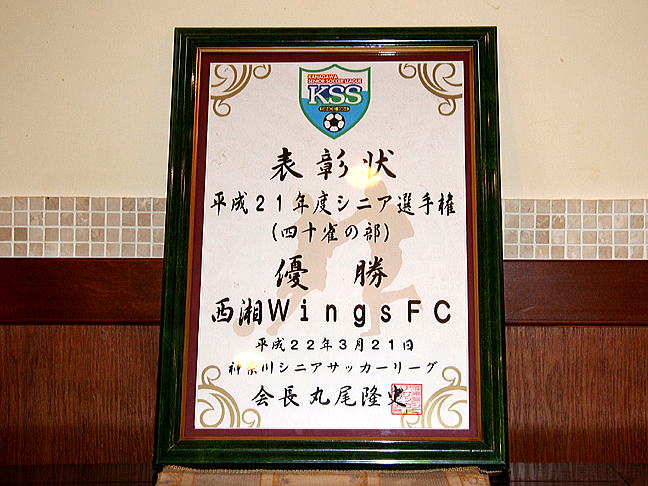 KANAGAWA
SENIOR SOCCER LEAGUE
KSS
SINCE 1984
表彰状
平成21年度シニア選手権
(四十雀の部)
優勝
西湘WingsFC
平成22年3月21日
神奈川シニアサッカーリーグ
会長 丸尾隆史